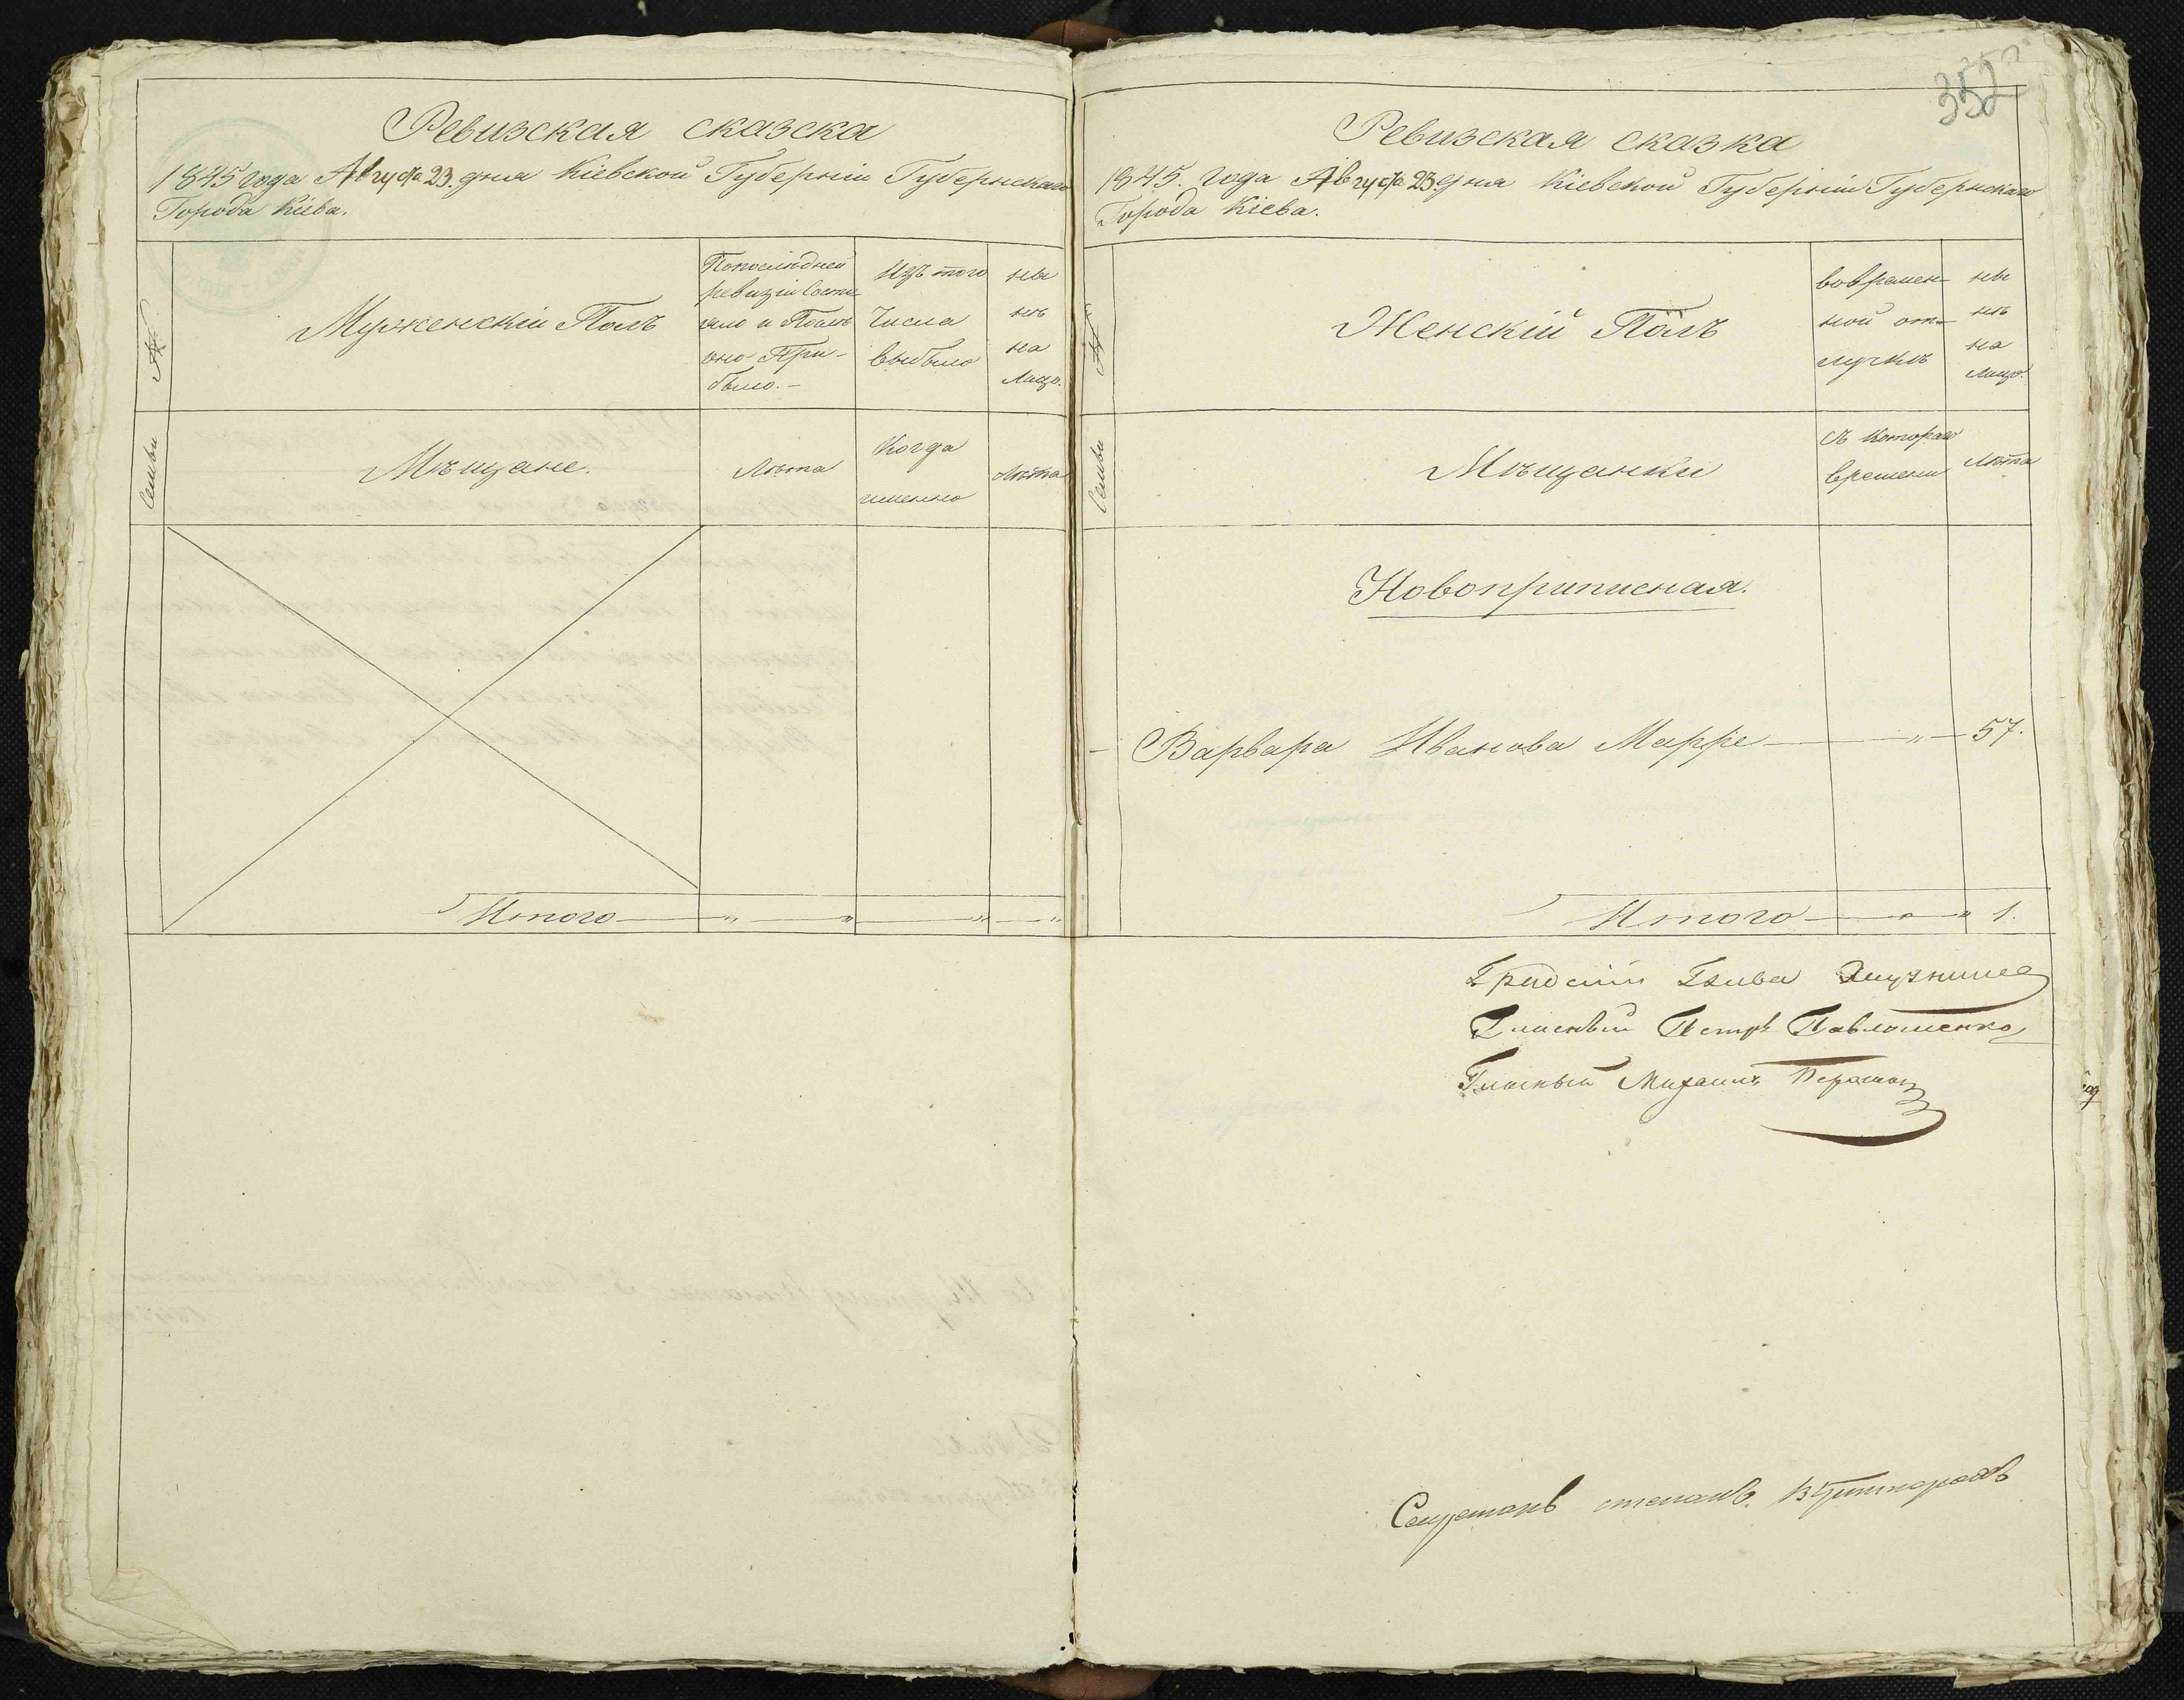 Ревизская сказска
1845 года Августа 23. дня Кіевской Губерніи Губернскаго
Города Кіева.
№ Семьи
Мужескій Полъ
Попослѣдней
ревизіи Состо
яло и Послѣ
оно При-
было.-
Изъ того
Числа
выбыло
ны
нѣ
на
Лицо.
Мѣщане.
Лѣта
Когда
именно
Лѣта
Итого
352
Ревизская сказка
1845. года Августа 23 дня Кіевской Губерніи Губернскаго
Города Кіева.
№ Семьи
Женскій Полъ
вовремен-
ной от-
лучкѣ
ны
нѣ
на
Лицо.
Мѣщанки
Съ котораго
времени
Лѣта
Новоприписная.
Варвара Иванова Марре — „ — 57.
Итого — „ — „ 1.
Градскій Глава
Гласный Петръ Павлошенко
Гласный Михаилъ
Секретарь